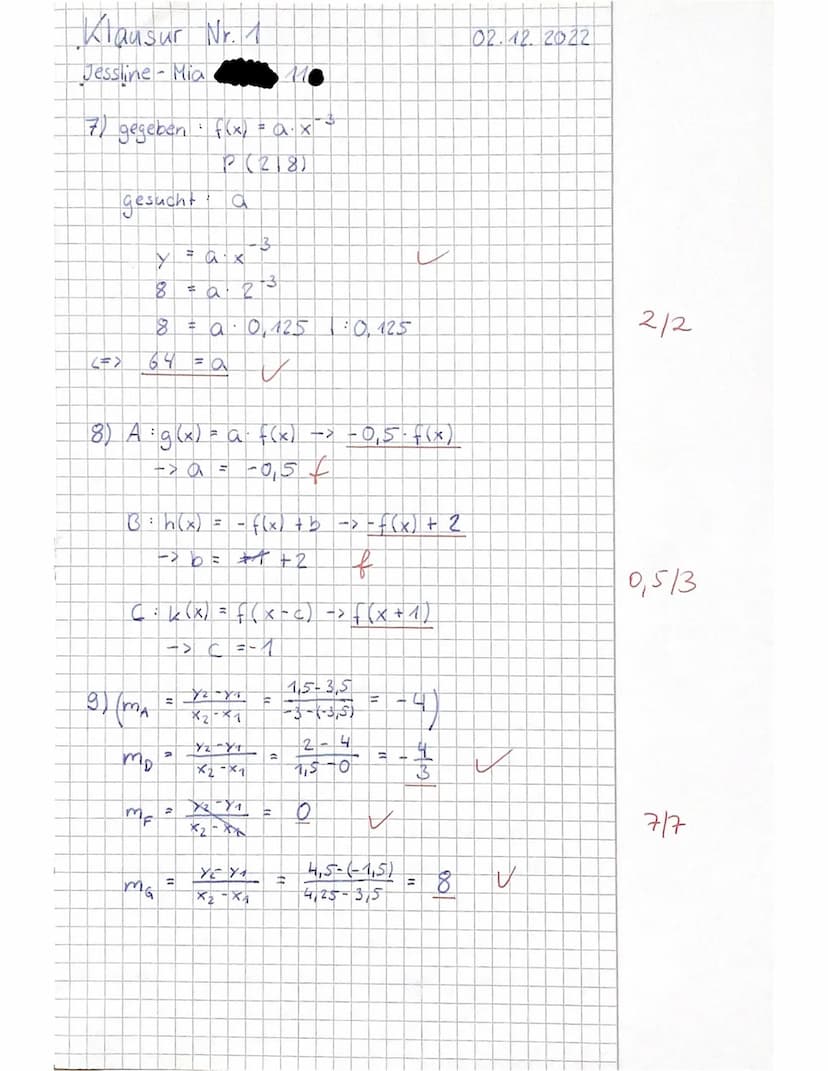 Klausur Nr. 1 02.12.2022
Jessline-Mia 11
7) gegeben: f(x) = a·x⁻³
P(2|8)
gesucht: a
y = a·x⁻³ ✓
8 = a·2⁻³
8 = a·0,125 |:0,125 2/2
<=> 64 = a ✓
8) A: g(x) = a·f(x) -> -0,5·f(x)
-> a = -0,5 f
B: h(x) = -f(x)+b -> -f(x)+2
-> b = +2 f
0,5/3
C: k(x) = f(x-c) -> f(x+1)
-> c = -1
9) (m_A = (y₂-y₁)/(x₂-x₁) = (1,5-3,5)/(-3-(-3,5)) = -4)
m_D = (y₂-y₁)/(x₂-x₁) = (2-4)/(1,5-0) = -4/3 ✓
m_F = (y₂-y₁)/(x₂-x₁) = 0 ✓ 7/7
m_G = (y₂-y₁)/(x₂-x₁) = (4,5-(-1,5))/(4,25-3,5) = 8 ✓